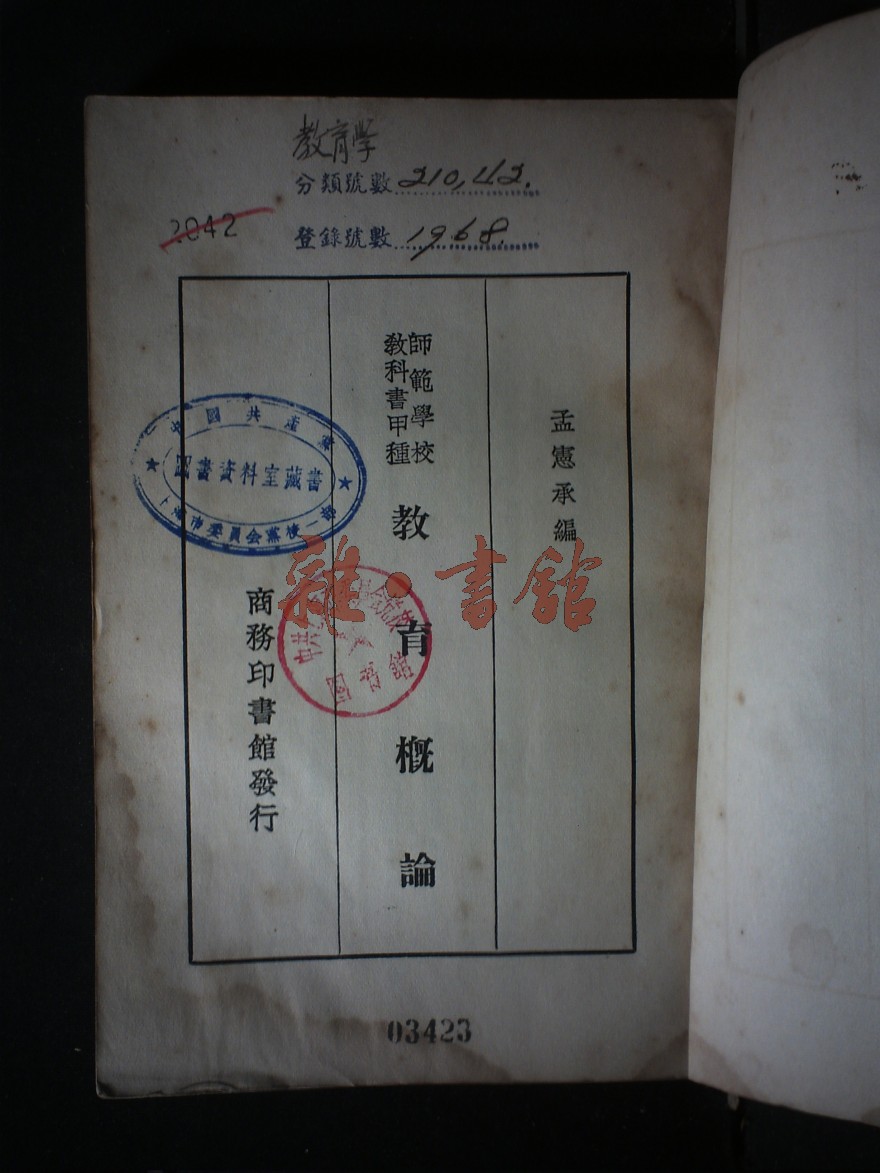 教育學
分類號數 210,42.
登錄號數 1968.
2042
孟憲承編
師範學校
教科書甲種
教育概論
商務印書館發行
中國共產黨
圖書資料室藏書
上海市委員會黨校一部
圖書館
雜·書館
03423